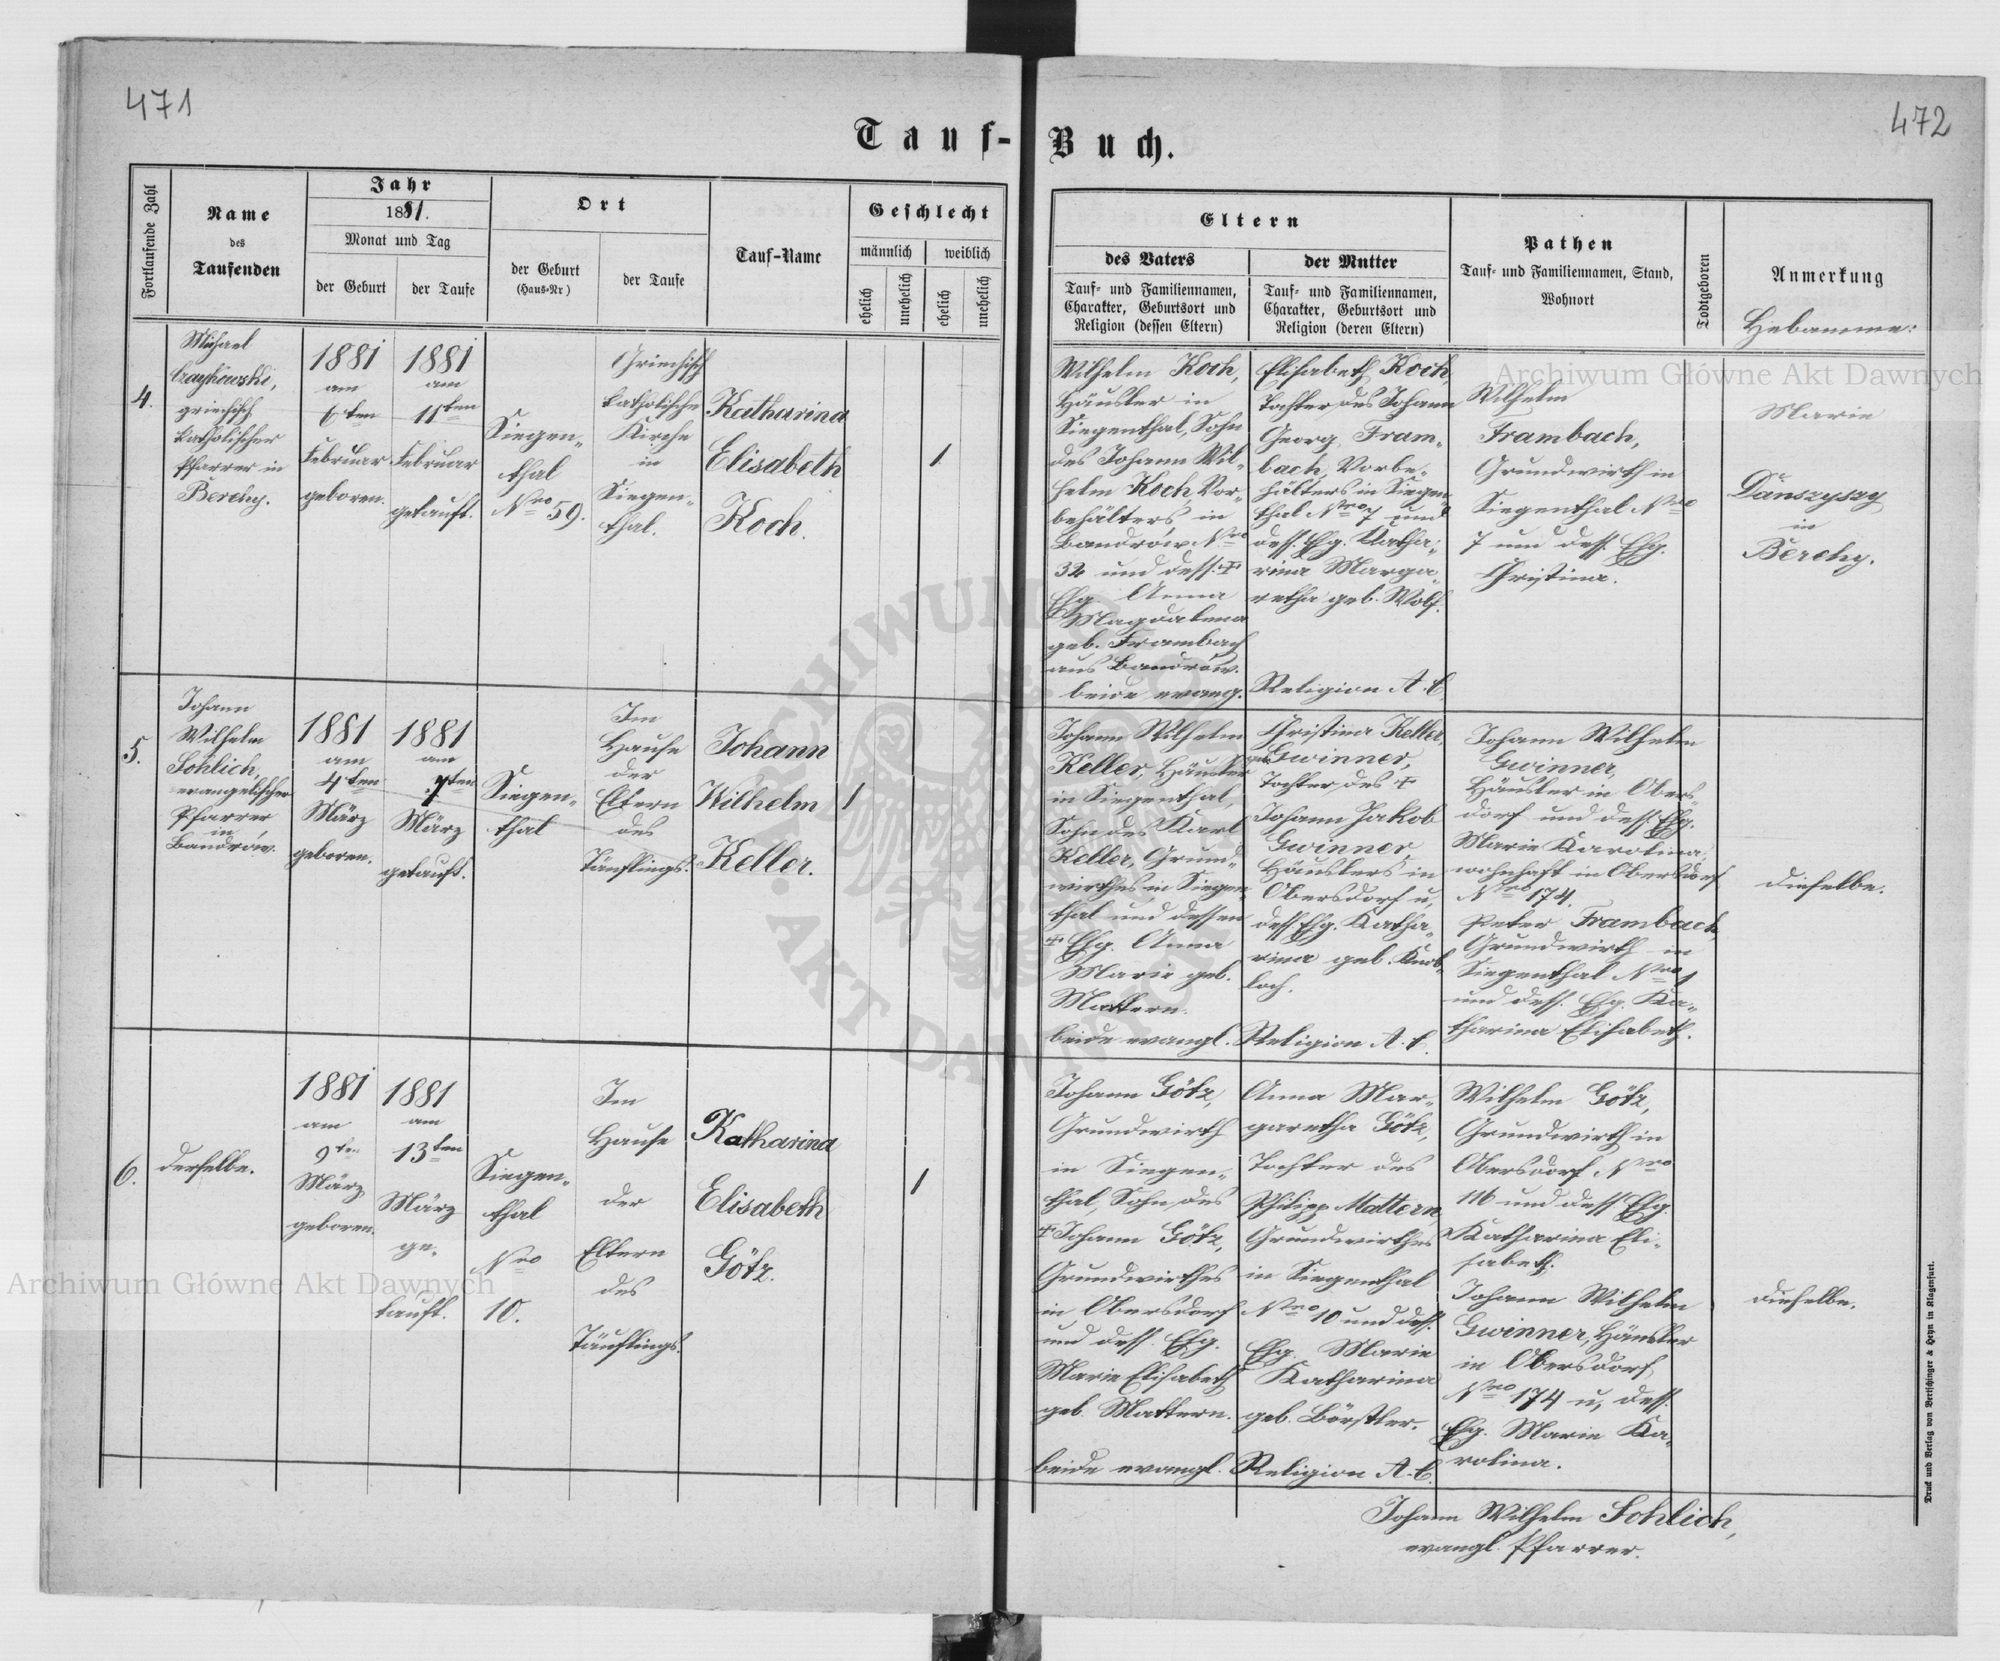 471
472
Tauf-Buch.
Fortlaufende Zahl
Name
des
Taufenden
Jahr
1881.
Monat und Tag
der Geburt
der Taufe
Ort
der Geburt
(Haus-Nr)
der Taufe
Tauf-Name
Geschlecht
männlich
weiblich
ehelich
unehelich
ehelich
unehelich
Eltern
des Vaters
Tauf- und Familiennamen,
Charakter, Geburtsort und
Religion (dessen Eltern)
der Mutter
Tauf- und Familiennamen,
Charakter, Geburtsort und
Religion (deren Eltern)
Pathen
Tauf- und Familiennamen, Stand,
Wohnort
Todtgeboren
Anmerkung
Hebamme:
4.
Michael
griechisch
katholischer
Pfarrer in
Berehy.
1881
am
6ten
Februar
geboren.
1881
am
11ten
Februar
getauft.
Siegen-
thal
Nro 59.
Griechisch
katholische
Kirche
in
Siegen-
thal.
Katharina
Elisabeth
Koch.
1
Wilhelm Koch,
Häusler in
Siegenthal, Sohn
des Johann Wil-
helm Koch Vor-
behälters in
Bandrów Nro
32 und dess. +
Ehg. Anna
Magdalena
geb. Frambach
aus Bandrów.
beide evang.
Elisabeth Koch,
Tochter des Johann
Georg Fram-
bach, Vorbe-
hälters in Siegen-
thal Nro 7 und
dess. Ehg. Katha-
rina Marga-
retha geb. Wolf.
Religion A. C.
Wilhelm
Frambach,
Grundwirth in
Siegenthal Nro
7 und dess. Ehg.
Christina.
Marie
Danszyszy
in
Berehy.
5.
Johann
Wilhelm
Sohlich,
evangelischer
Pfarrer
in
Bandrów.
1881
am
4ten
März
geboren.
1881
am
7ten
März
getauft.
Siegen-
thal
Im
Hause
der
Eltern
des
Täuflings.
Johann
Wilhelm
Keller.
1
Johann Wilhelm
Keller, Häusler
in Siegenthal,
Sohn des Karl
Keller, Grund-
wirthes in Siegen-
thal und dessen
+ Ehg. Anna
Marie geb.
Mattern.
beide evangl.
Christina Keller,
geb. Gwinner,
Tochter des +
Johann Jakob
Gwinner
Häuslers in
Obersdorf u.
dess. Ehg. Katha-
rina geb. Knob-
loch.
Religion A. C.
Johann Wilhelm
Gwinner,
Häusler in Obers-
dorf und dess. Ehg.
Marie Karolina,
wohnhaft in Obersdorf
Nro 174.
Peter Frambach,
Grundwirth in
Siegenthal Nro 1
und dess. Ehg. Ka-
tharina Elisabeth.
dieselbe.
6.
derselbe.
1881
am
9ten
März
geboren.
1881
am
13ten
März
ge-
tauft.
Siegen-
thal
Nro
10.
Im
Hause
der
Eltern
des
Täuflings.
Katharina
Elisabeth
Götz.
1
Johann Götz,
Grundwirth
in Siegen-
thal, Sohn des
+ Johann Götz,
Grundwirthes
in Obersdorf
und dess. Ehg.
Marie Elisabeth
geb. Mattern.
beide evangl.
Anna Mar-
garetha Götz,
Tochter des
Philipp Mattern,
Grundwirthes
in Siegenthal
Nro 10 und dess.
Ehg. Marie
Katharina
geb. Börstler.
Religion A. C.
Wilhelm Götz,
Grundwirth in
Obersdorf Nro
116 und dess. Ehg.
Katharina Eli-
sabeth.
Johann Wilhelm
Gwinner, Häusler
in Obersdorf
Nro 174 u. dess.
Ehg. Marie Ka-
rolina.
dieselbe.
Johann Wilhelm Sohlich,
evangl. Pfarrer.
Druck und Verlag von Bertschinger & Heyn in Klagenfurt.
Archiwum Główne Akt Dawnych
Archiwum Główne Akt Dawnych
ARCHIWUM GŁÓWNE AKT DAWNYCH